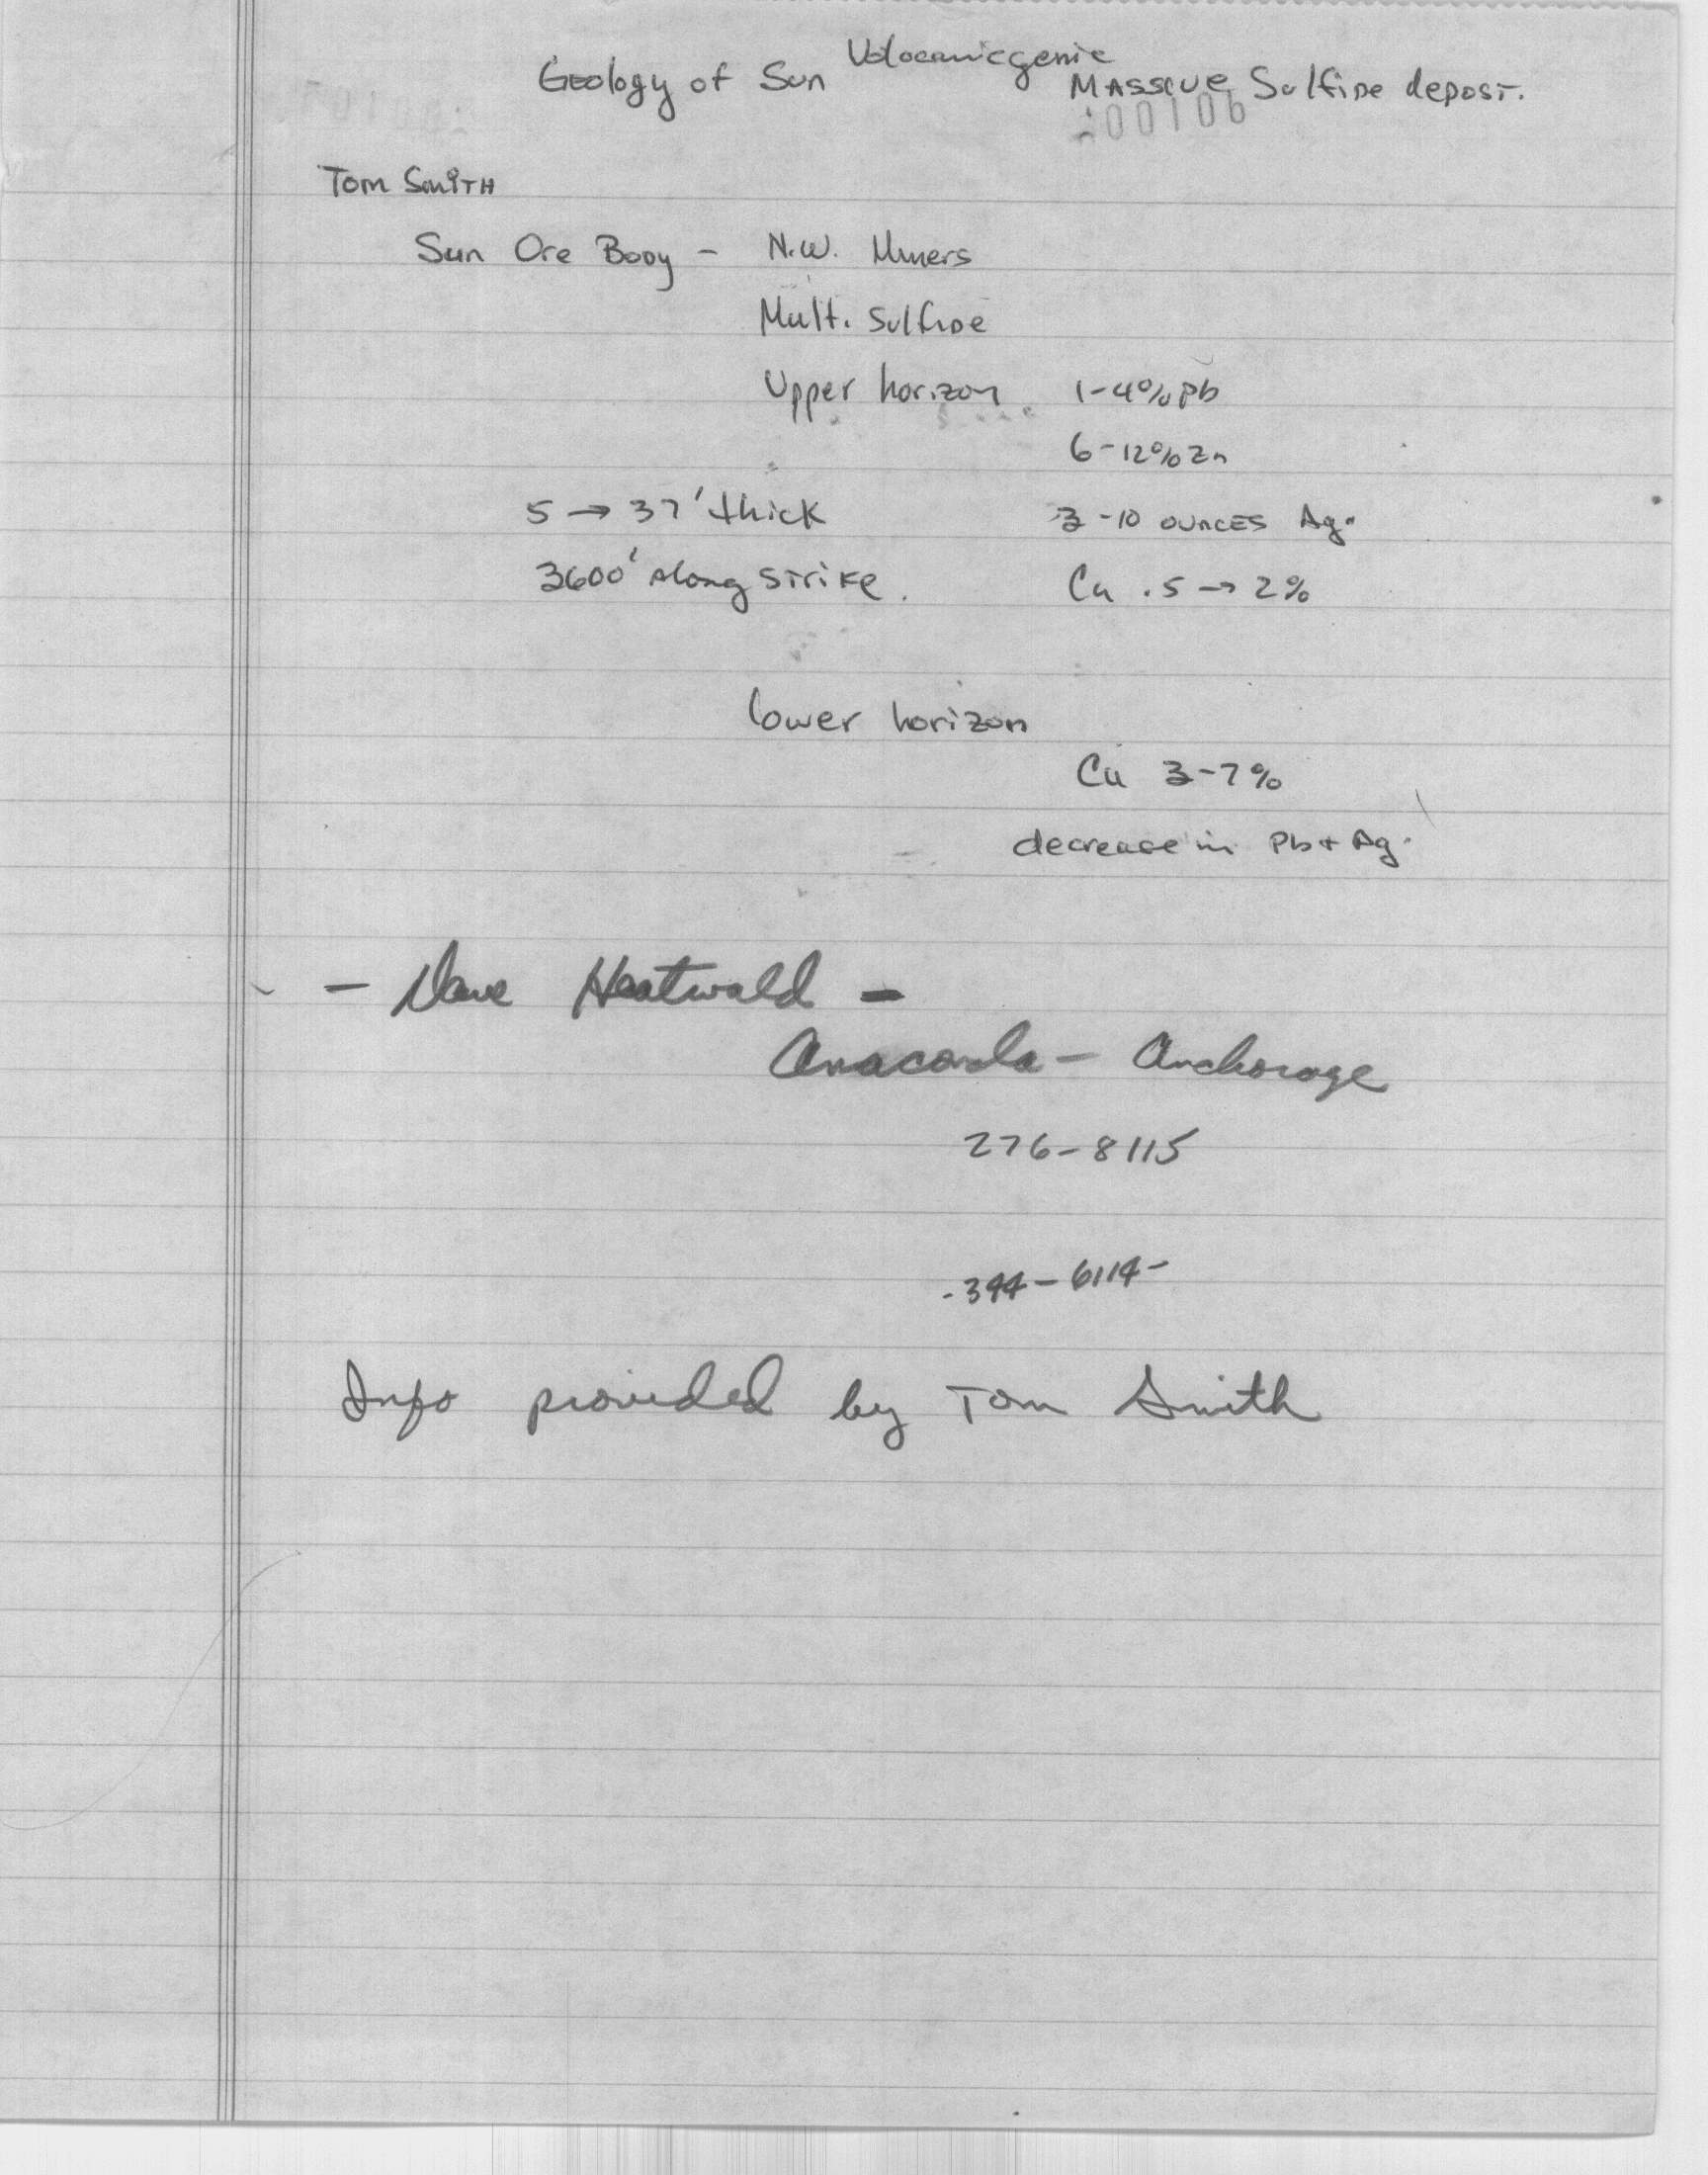 Geology of Sun Volocanicgenic Massive Sulfide depost.
200106
Tom Smith
Sun Ore Body - N.W. Miners
Mult. Sulfide
Upper horizon 1-4% Pb
6-12% Zn
5 → 37' thick 3-10 ounces Ag.
3600' along strike. Cu .5 → 2%
lower horizon
Cu 3-7%
decrease in Pb + Ag.
- Dave Heatwald -
Anaconda - Anchorage
276-8115
-344-6114-
Info provided by Tom Smith